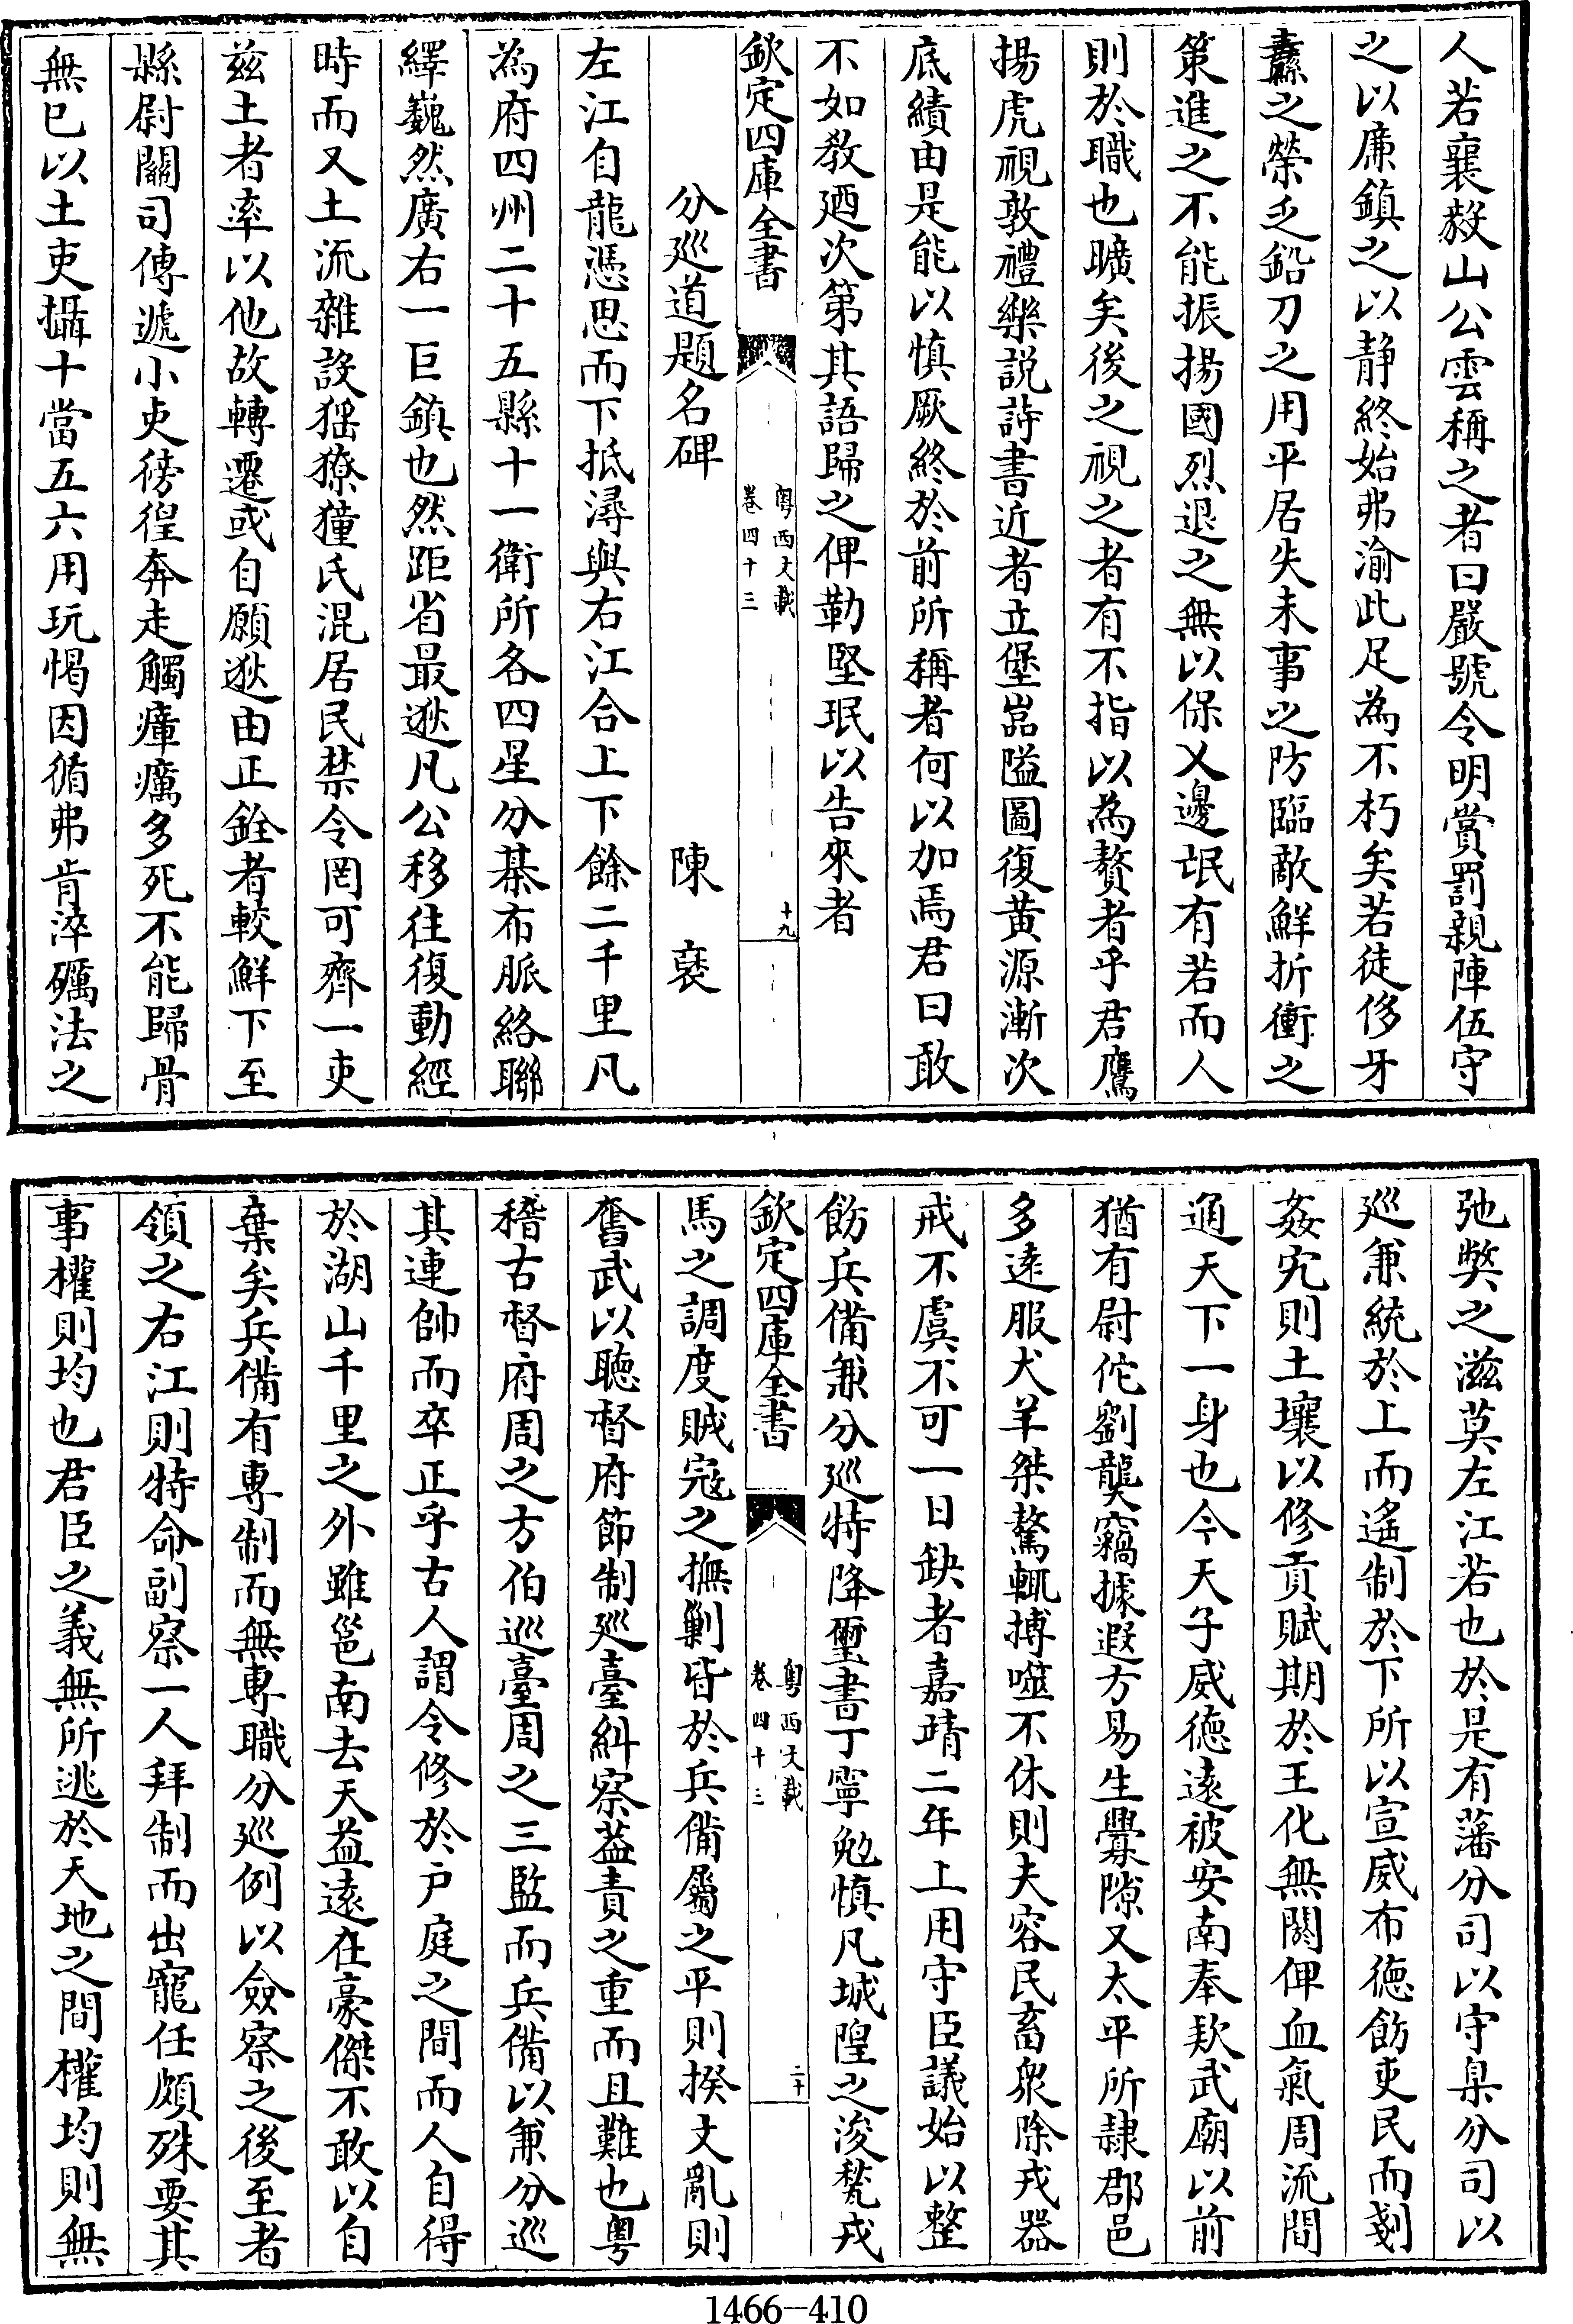 人若襄毅山公雲稱之者曰嚴號令明賞罰親陣伍守
之以廉鎮之以静終始弗渝此足為不朽矣若徒侈牙
纛之榮乏鉛刀之用平居失未事之防臨敵鮮折衝之
策進之不能振揚國烈退之無以保乂邊氓有若而人
則於職也曠矣後之視之者有不指以為贅者乎君鷹
揚虎視敦禮樂説詩書近者立堡嵓隘圖復黄源漸次
底績由是能以慎厥終於前所稱者何以加焉君曰敢
不如教廼次第其語歸之俾勒堅珉以告來者
欽定四庫全書
粤西文載
卷四十三
十九
分廵道題名碑
陳 裦
左江自龍憑思而下抵潯與右江合上下餘二千里凡
為府四州二十五縣十一衛所各四星分棊布脈絡聯
繹巍然廣右一巨鎮也然距省最逖凡公移往復動經
時而又土流雜設猺獠獞氏混居民禁令罔可齊一吏
兹土者率以他故轉遷或自願逖由正銓者較鮮下至
縣尉關司傳遞小吏徬徨奔走觸瘴癘多死不能歸骨
無已以土吏攝十當五六用玩愒因循弗肯淬礪法之
弛獘之滋莫左江若也於是有藩分司以守臬分司以
廵兼統於上而遙制於下所以宣威布德飭吏民而剗
姦宄則土壤以修貢賦期於王化無閼俾血氣周流間
通天下一身也今天子威德遠被安南奉欵武廟以前
猶有尉佗劉龑竊據遐方易生釁隙又太平所隷郡邑
多遠服犬羊桀驁輒搏噬不休則夫容民畜衆除戎器
戒不虞不可一日缺者嘉靖二年上用守臣議始以整
飭兵備兼分廵特降璽書丁寧勉慎凡城隍之浚甃戎
欽定四庫全書
粤西文載
卷四十三
二十
馬之調度賊宼之撫剿皆於兵備屬之平則揆文亂則
奮武以聽督府節制廵臺糾察葢責之重而且難也粤
稽古督府周之方伯廵臺周之三監而兵備以兼分廵
其連帥而卒正乎古人謂令修於户庭之間而人自得
於湖山千里之外雖邕南去天益遠在豪傑不敢以自
棄矣兵備有専制而無専職分廵例以僉察之後至者
領之右江則特命副察一人拜制而出寵任頗殊要其
事權則均也君臣之義無所逃於天地之間權均則無
1466—410